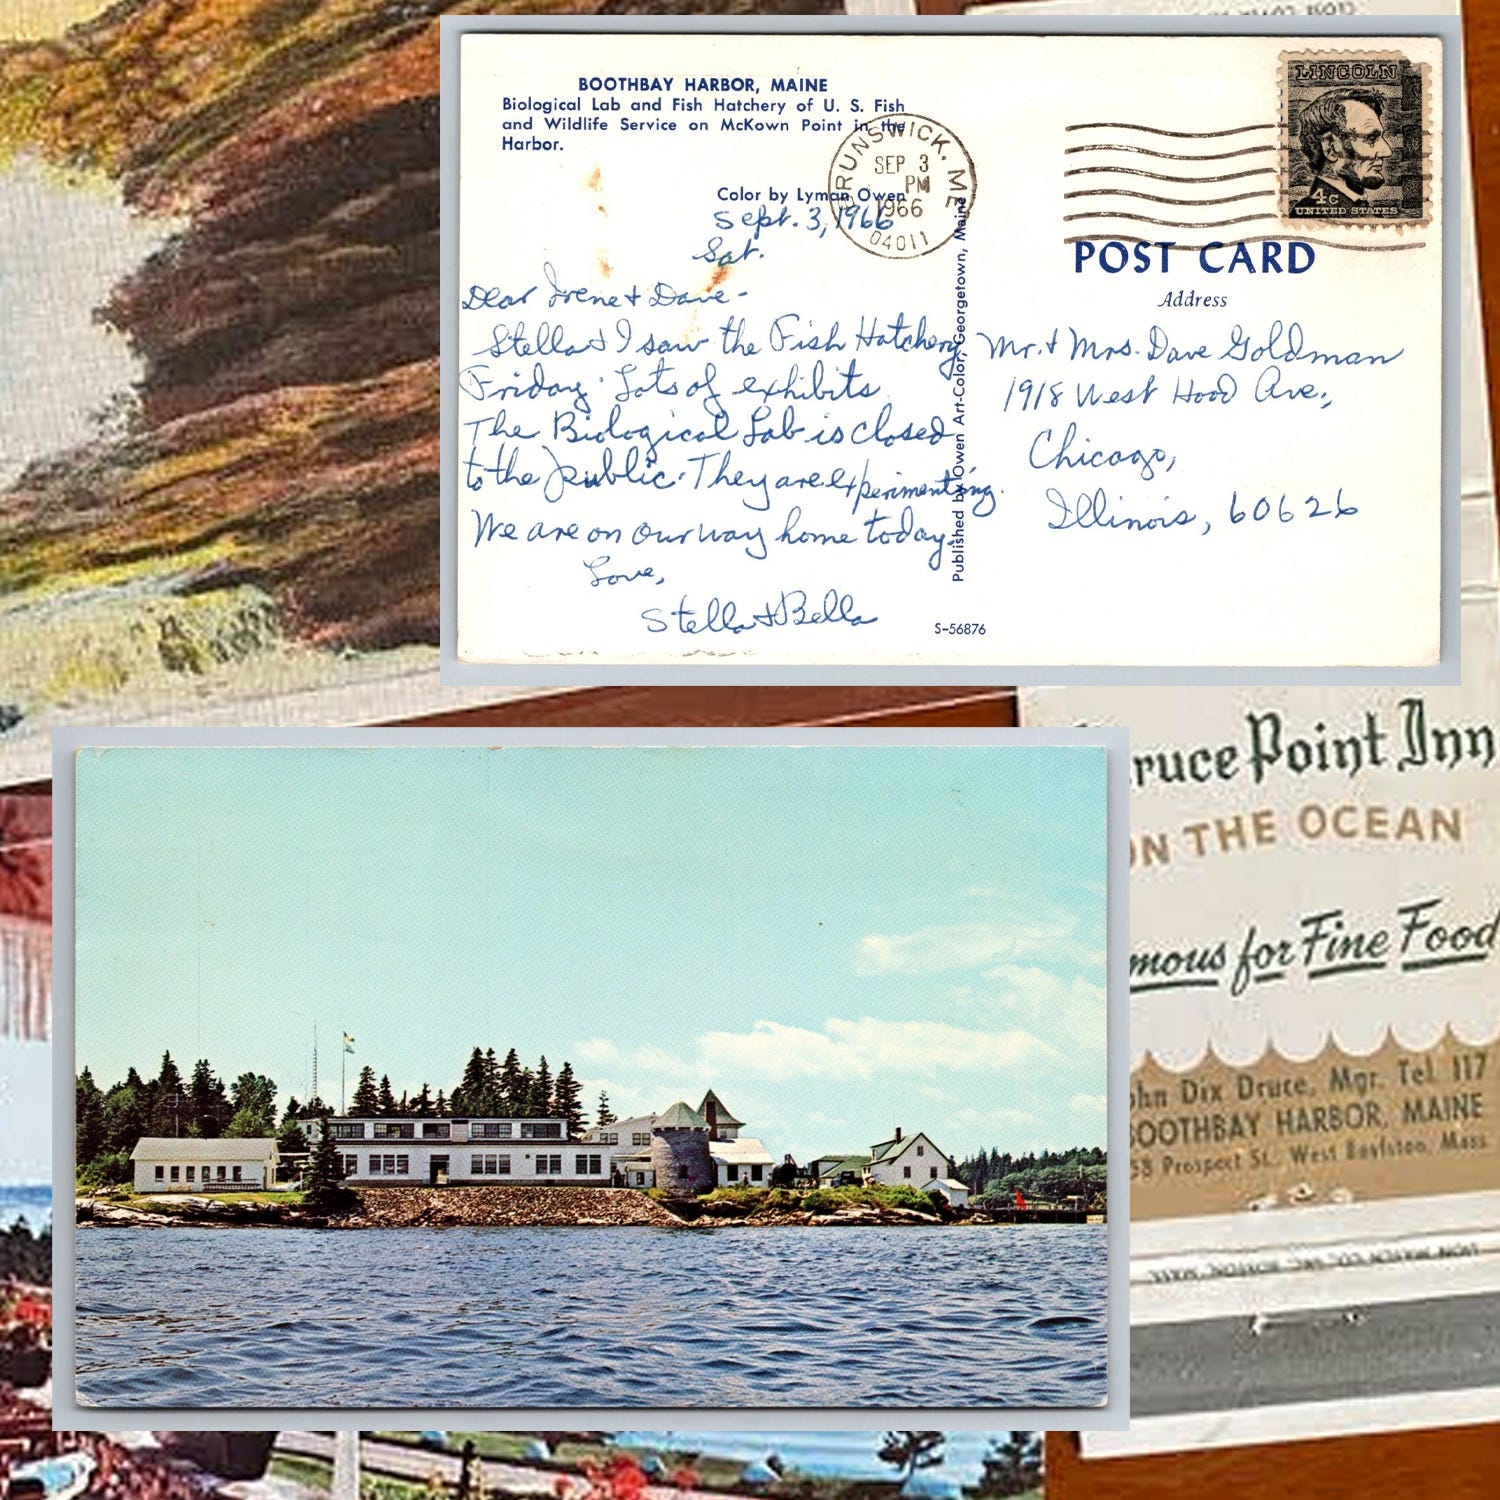 BOOTHBAY HARBOR, MAINE
Biological Lab and Fish Hatchery of U. S. Fish
and Wildlife Service on McKown Point in the
Harbor.
Color by Lyman Owen
BRUNSWICK, ME
SEP 3
PM
1966
04011
LINCOLN
4c
UNITED STATES
POST CARD
Address
Sept. 3, 1966
Sat.
Dear Irene & Dave-
Stella & I saw the Fish Hatchery
Friday. Lots of exhibits
The Biological Lab is closed
to the public. They are experimenting.
We are on our way home today.
Love,
Stella & Bella
Published by Owen Art-Color, Georgetown, Maine
S-56876
Mr. & Mrs. Dave Goldman
1918 West Hood Ave.,
Chicago,
Illinois, 60626
ruce Point Inn
ON THE OCEAN
mous for Fine Food
ohn Dix Druce, Mgr. Tel. 117
BOOTHBAY HARBOR, MAINE
58 Prospect St., West Boylston, Mass.